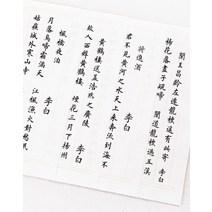 聞王昌齡左遷龍標遙有此寄 李白
楊花落盡子規啼 聞道龍標過五溪
將進酒 李白
君不見黃河之水天上來奔流到海不
黃鶴樓送孟浩然之廣陵 李白
故人西辭黃鶴樓 煙花三月下揚州
楓橋夜泊 李白
月落烏啼霜滿天 江楓漁火對愁眠
姑蘇城外寒山寺